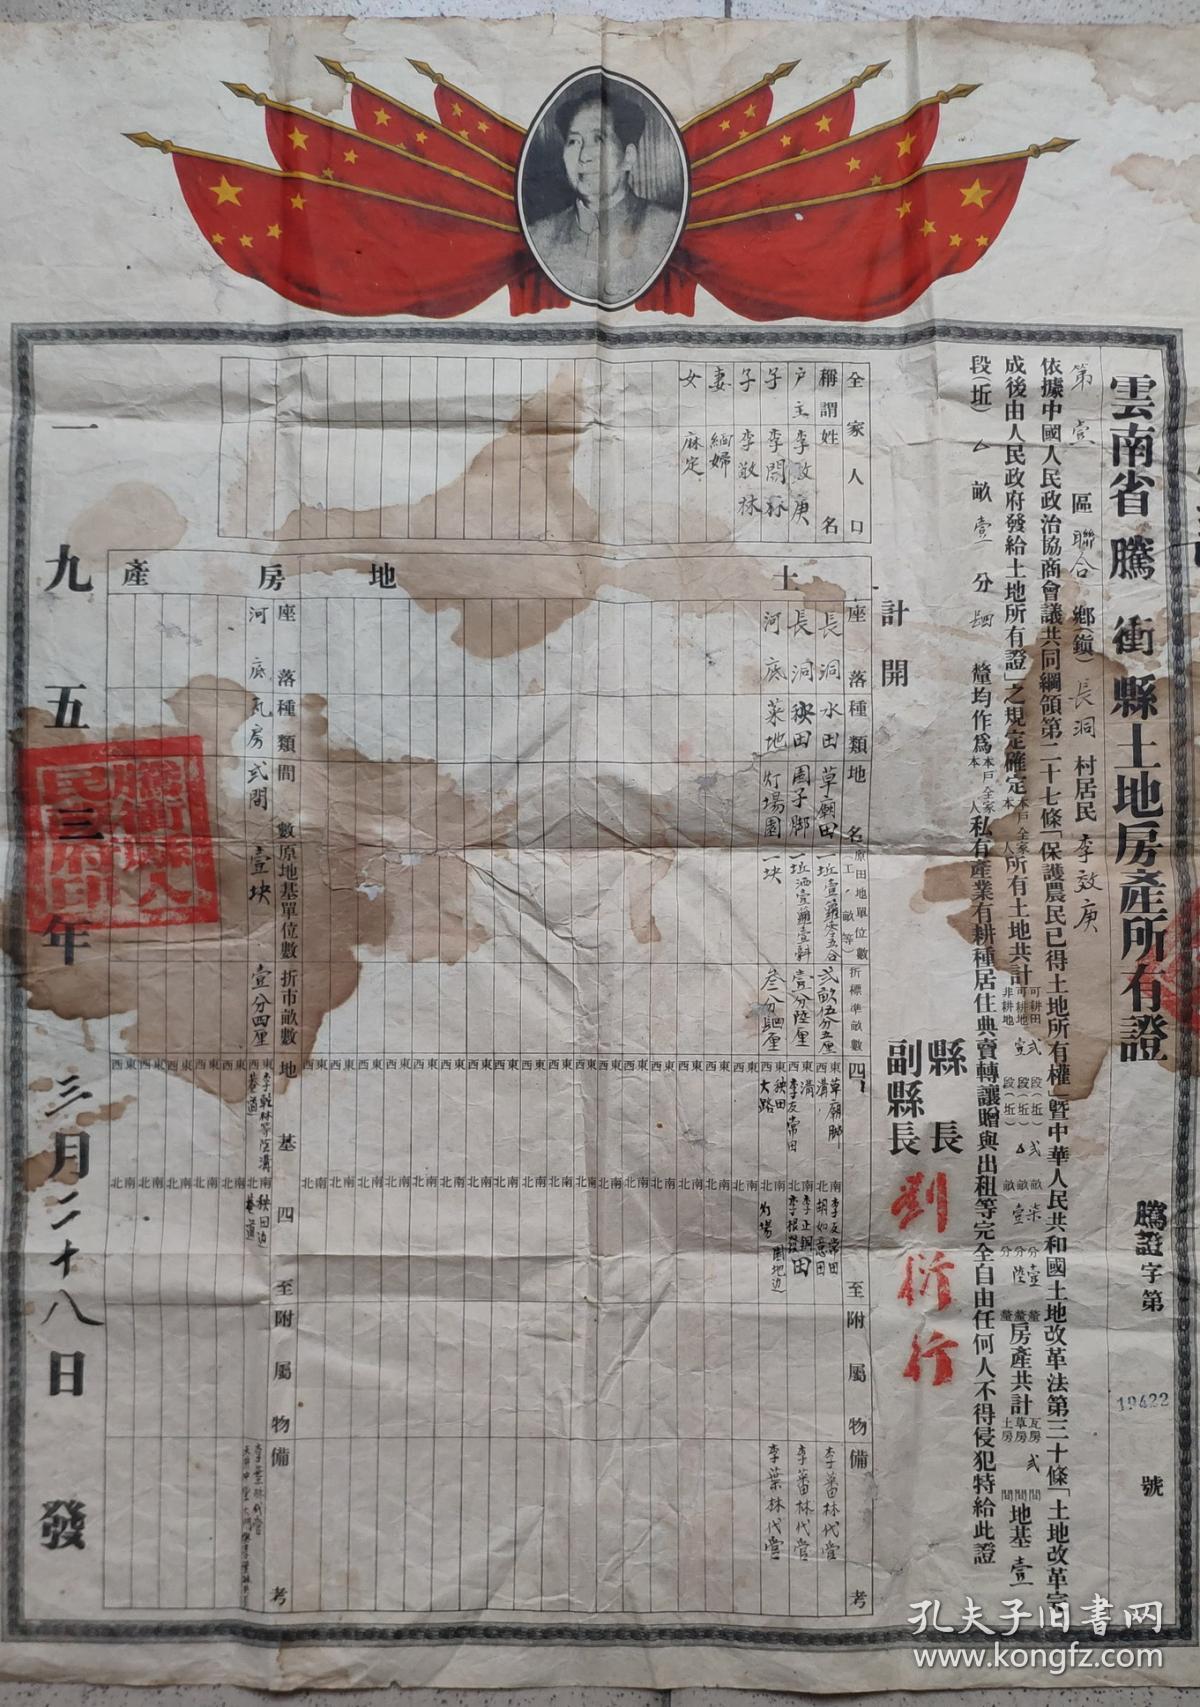 雲南省騰衝縣土地房產所有證
騰證字第19422號
第壹區聯合鄉(鎮)長洞村居民李效庚
依據中國人民政治協商會議共同綱領第二十七條「保護農民已得土地所有權」暨中華人民共和國土地改革法第三十條「土地改革完
成後由人民政府發給土地所有證」之規定確定本戶全家本人所有土地共計可耕田弍段(坵)弍畝柒分壹釐可耕地壹段(坵)畝壹分陸釐非耕地房產共計瓦房弍間草房間土房間地基壹
段(坵)畝壹分釐均作為本戶全家本人私有產業有耕種居住典賣轉讓贈與出租等完全自由任何人不得侵犯特給此證
縣長
副縣長
劉衍行
計開
全家人口
稱謂姓名
戶主李效庚
子李開林
子李敬林
妻緬婦
女麻定
土地
座落種類地名原田地單位數(工,畝等)折標準畝數四至附屬物備考
長洞水田草廟田一坵壹籮零五合弍畝伍分五厘東草廟脚西溝南李友常田北胡如意田李蕃林代営
長洞秧田園子脚一坵壹籮壹斜壹分陸厘東溝西李友常田南李正朝田北李根發田李蕃林代営
河底菜地灯場園一块叁分厘東秧田西大路南園地边北李葉林代営
房產
座落種類間數原地基單位數折市畝數地基四至附屬物備考
河底瓦房弍間壹块壹分四厘西巷道南秧田边北巷道
一九五三年三月二十八日發
孔夫子旧書网
www.kongfz.com